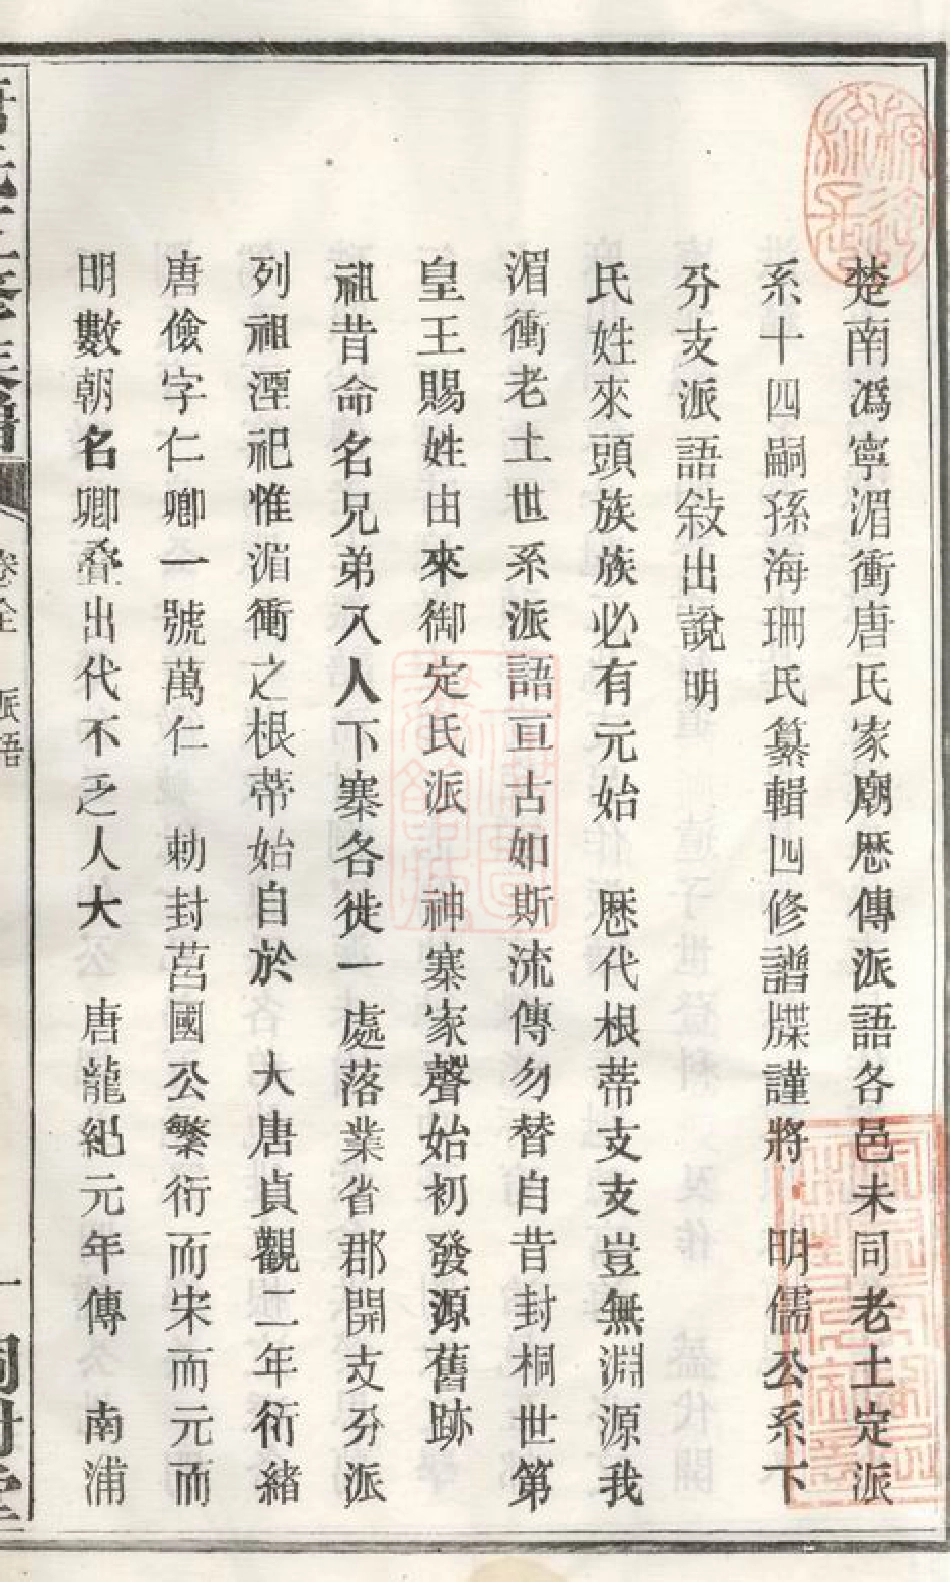 楚南溈寧湄衝唐氏家廟歷傳派語各邑未同老土定派
系十四嗣孫海珊氏纂輯四修譜牒謹將　明儒公系下
分支派語敍出說明
氏姓來頭族族必有元始　歷代根蒂支支豈無淵源我
湄衝老土世系派語亘古如斯流傳勿替自昔封桐世第
皇王賜姓由來御定氏派　神寨家聲始初發源舊跡
祖昔命名兄弟入人下寨各徙一處落業省郡開支分派
列祖湮祀惟湄衝之根蒂始自於　大唐貞觀二年衍緒
唐儉字仁卿一號萬仁　勅封莒國公繁衍而宋而元而
明數朝名卿叠出代不乏人大　唐龍紀元年傳　南浦
卷全　派語　一